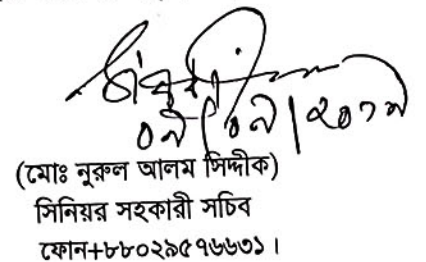 ০৯/০৯/২০১৯
(মোঃ নুরুল আলম সিদ্দীক)
সিনিয়র সহকারী সচিব
ফোন+৮৮০২৯৫৭৬৬৩১।